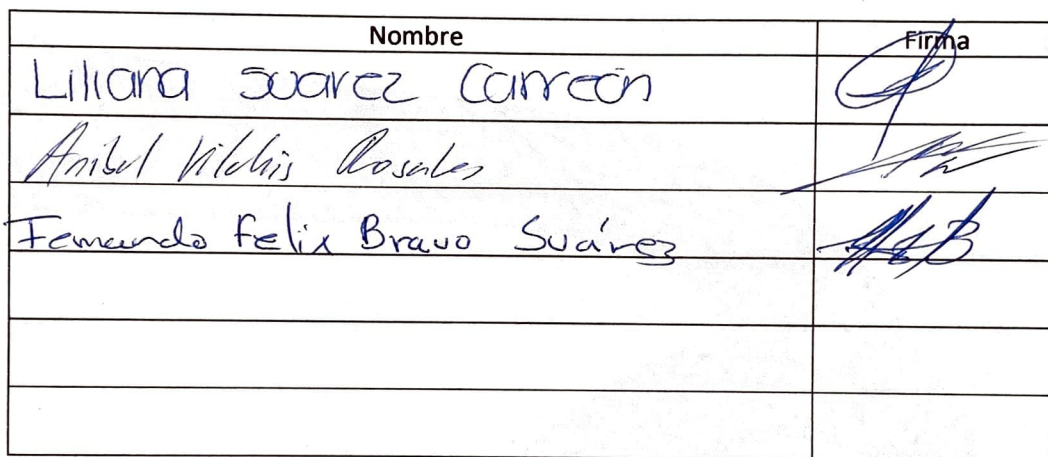 Nombre Firma
Liliana Suarez Carreón
Anibal Vilchis Rosales
Fernando Felix Bravo Suárez